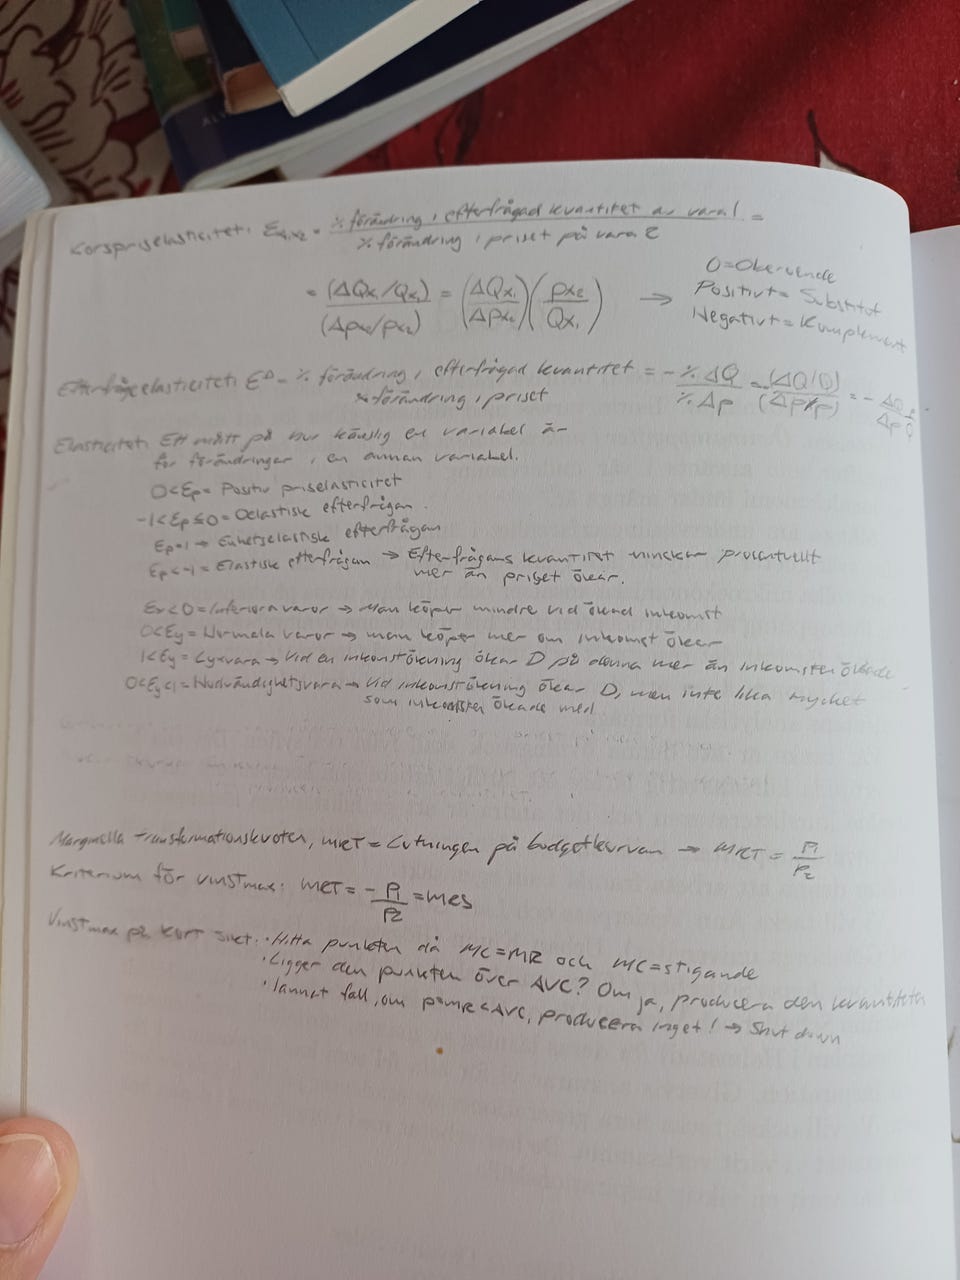 Korspriselasticitet: Ex1x2 = % förändring i efterfrågad kvantitet av vara 1 =
% förändring i priset på vara 2
= (ΔQx1/Qx1) = (ΔQx1) (px2) →
(Δpx2/px2) (Δpx2) (Qx1)
0 = Oberoende
Positivt = Substitut
Negativt = Komplement
Efterfrågeelasticitet: E^D = % förändring i efterfrågad kvantitet = - %ΔQ = (ΔQ/Q) = - ΔQ p
% förändring i priset %Δp (Δp/p) Δp Q
Elasticitet: Ett mått på hur känslig en variabel är
för förändringar i en annan variabel.
0<Ep = Positiv priselasticitet
-1<Ep≤0 = Oelastisk efterfrågan.
Ep=1 → Enhetselastisk efterfrågan
Ep<-1 = Elastisk efterfrågan → Efterfrågans kvantitet minskar procentuellt
mer än priset ökar.
Ey<0 = Inferiora varor → Man köper mindre vid ökad inkomst
0<Ey = Normala varor → man köper mer om inkomst ökar
1<Ey = Lyxvara → Vid en inkomstökning ökar D på denna mer än inkomsten ökade
0<Ey<1 = Nödvändighetsvara → Vid inkomstökning ökar D, men inte lika mycket
som inkomsten ökade med
Marginella transformationskvoten, MRT = Lutningen på budgetkurvan → MRT = P1
P2
Kriterium för vinstmax: MRT = - P1 = MRS
P2
Vinstmax på kort sikt: · Hitta punkten då MC=MR och MC=stigande
· Ligger den punkten över AVC? Om ja, producera den kvantiteten
· I annat fall, om p=MR<AVC, producera inget! → Shut down